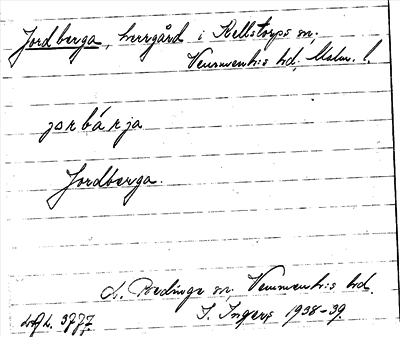 Jordberga, herrgård i Kellstorps sn.
Vemmenh:s hd, Malm. l.
jorbárja
Jordberga.
L. Bedinge sn, Vemmenh:s hd.
L.A.L. 3777. I. Ingers 1938-39.